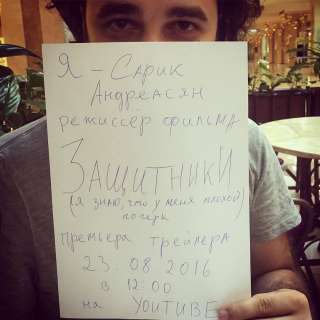 Я - Сарик
Андреасян
режиссер фильма
ЗАЩИТНИКИ
(я знаю, что у меня плохой
почерк)
премьера трейлера
23.08 2016
в 12:00
на YOUTUBE